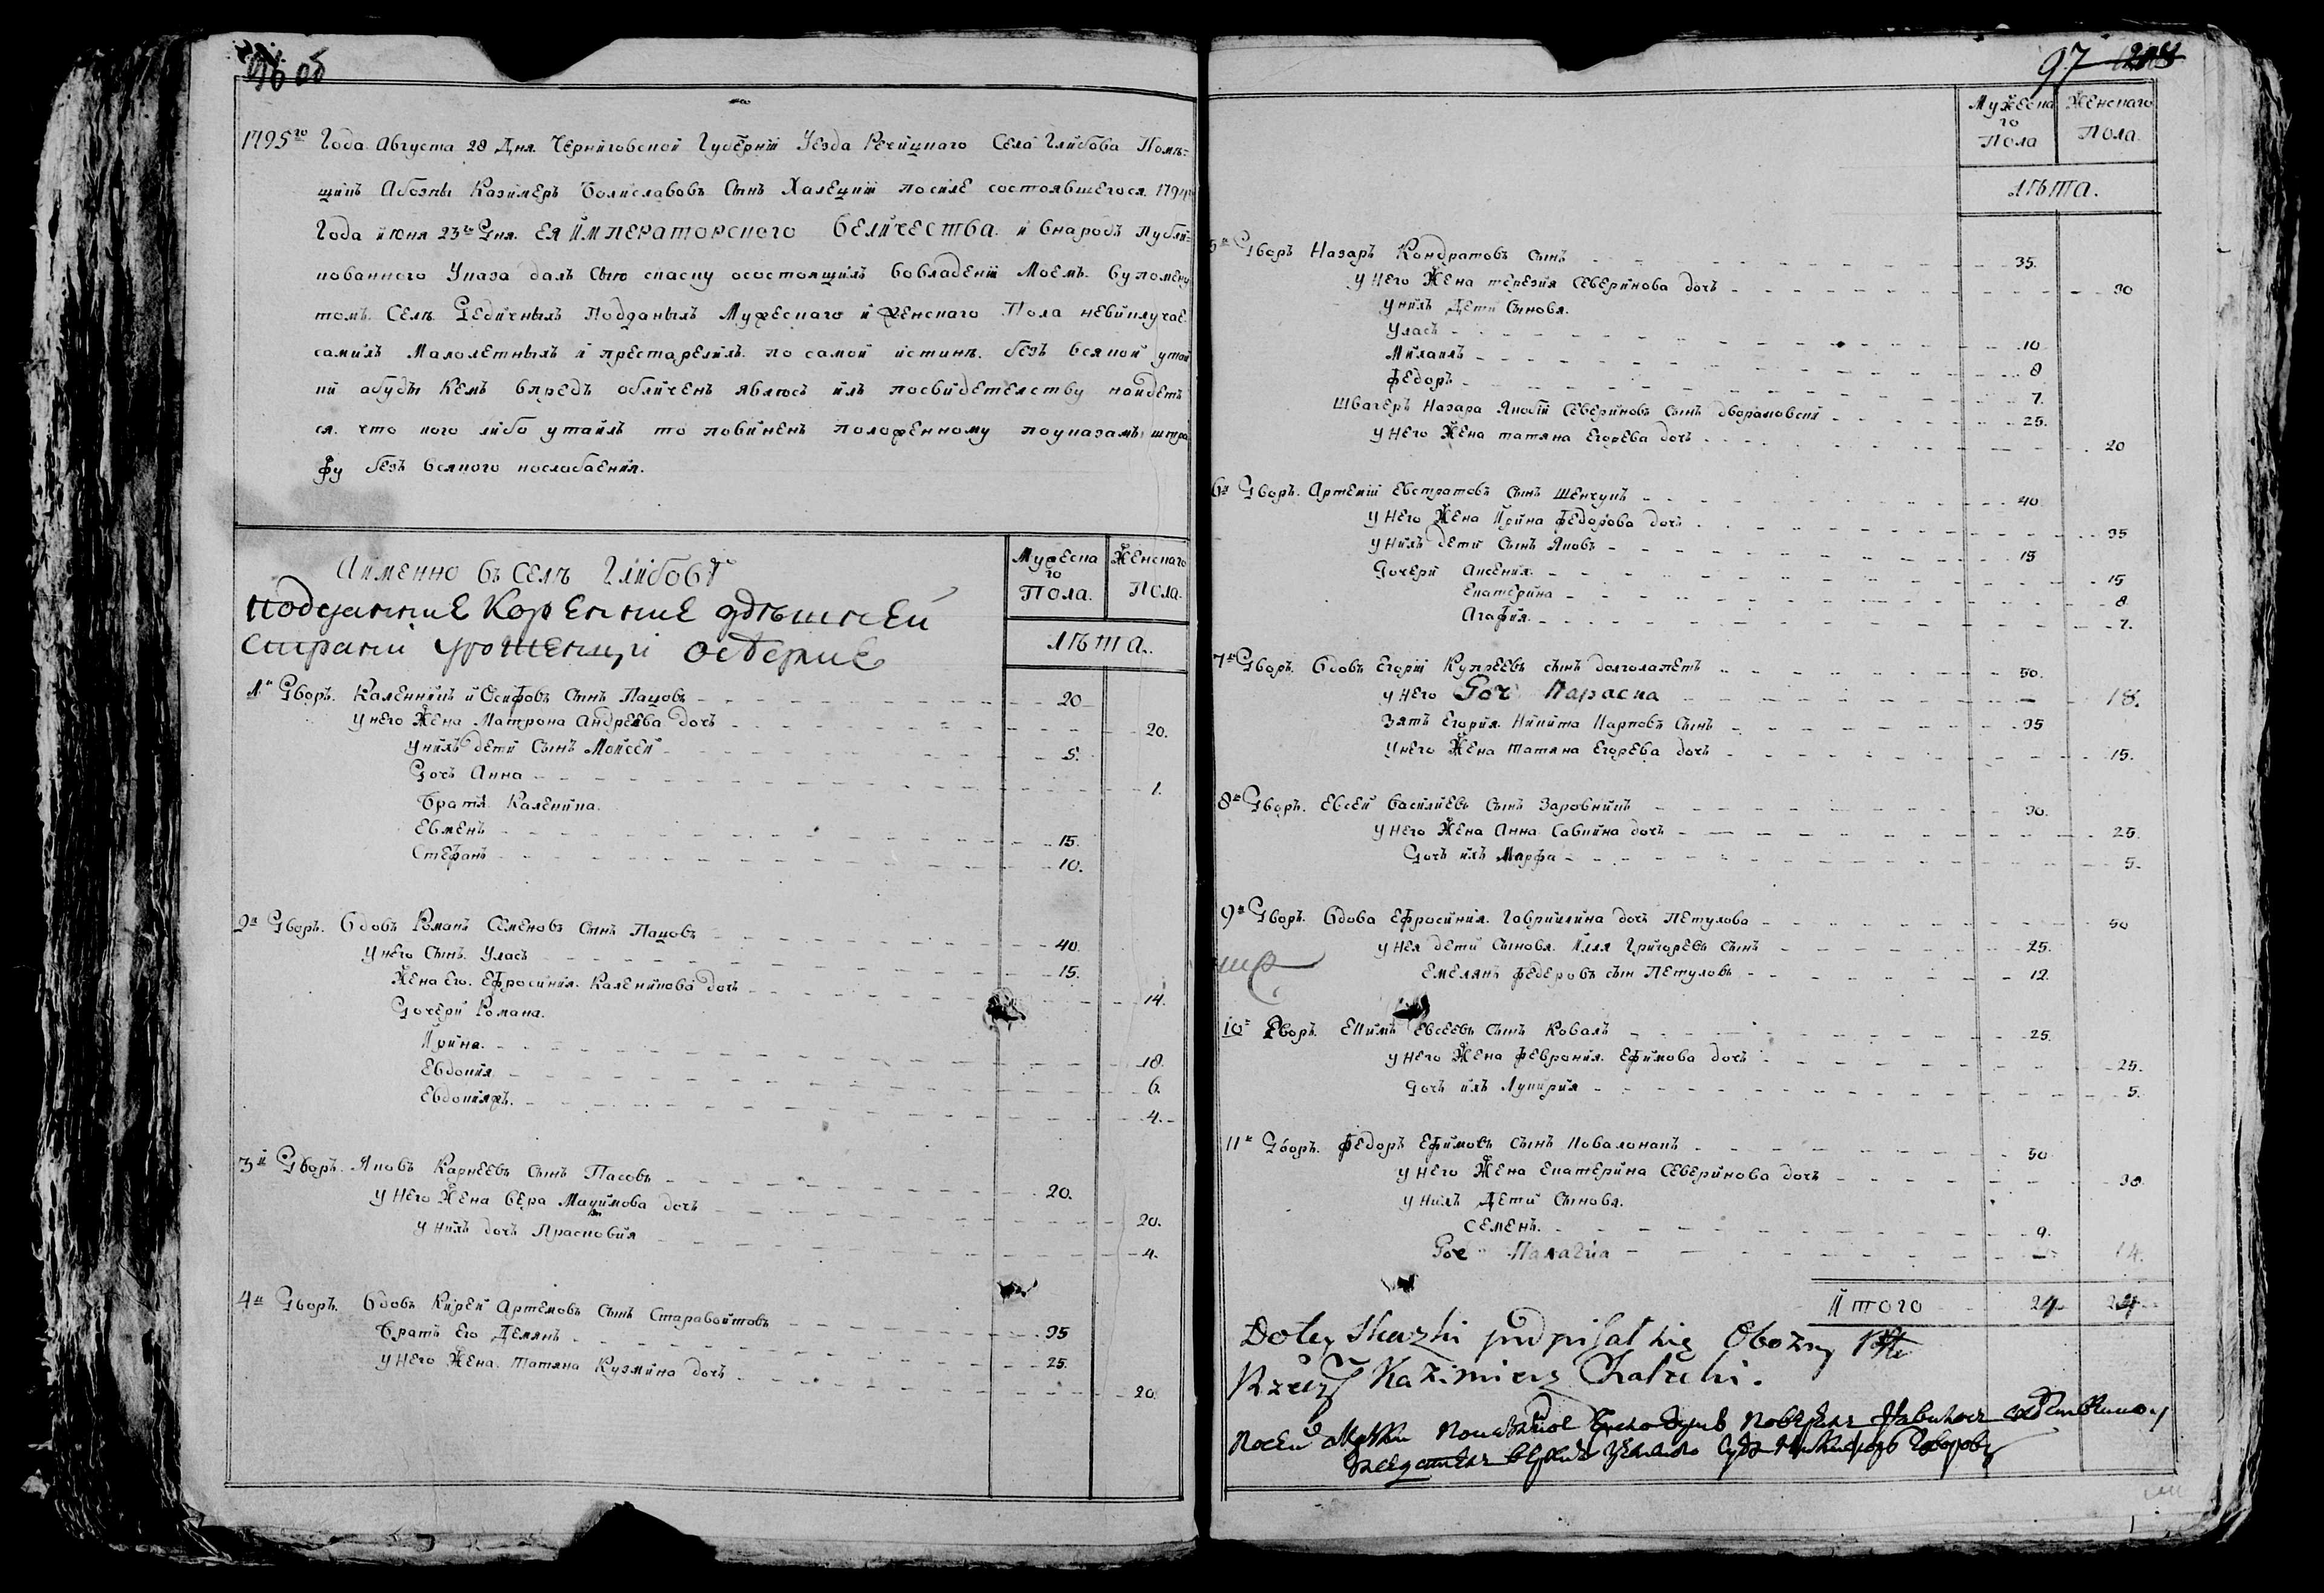 96 об
1795го Года Августа 28 Дня. Черниговской Губерніи Уезда Речицкаго Села Глибова Поме=
щикъ Абозны Казимеръ Болиславовъ Сынъ Халецкій посиле состоявшегося. 1794го
Года июня 23го Дня. ЕЯ ИМПЕРАТОРСКОГО ВЕЛИЧЕСТВА. и внародъ публи=
кованного Указа далъ сию скаску осостоящихъ вовладеніи Моемъ. вупомену
томъ. Селе. Дедичныхъ Подданыхъ Мужескаго и Женскаго Пола невиклучае
самихъ Малолетныхъ и престарелихъ. по самой истине. безъ всякой утай
ки абудь Кемъ впредъ обличенъ явлюсь илъ посвидетелству найдетъ
ся. что кого либо утаилъ то повиненъ положенному поуказамъ штра
фу безъ всякого послабаения.
Аименно въ Селе Глибовѣ
подданние Коренние здѣшней
страни уроженци
Мужеска
го
Пола.
Женскаго
Пола.
лѣта.
1й Дворъ. Каленникъ и Осифовъ Сынъ Пацовъ 20
унего Жена Матрона Андреева дочъ 20.
унихъ дети Сынъ Мойсей 5.
Дочъ Анна 1.
Братя Каленика.
Евменъ 15.
Стефанъ 10.
2й Дворъ. Вдовъ Романъ Семеновъ Сынъ Пацовъ 40.
унего Сынъ. Уласъ 15.
Жена его. Ефросиния. Каленикова дочъ 14.
Дочери Романа.
Ирина. 18.
Евдокия 6.
Евдокияжъ. 4.
3й Дворъ. Яковъ Карнеевъ Сынъ Пасовъ 20.
унего Жена Вера Мацимова дочъ 20.
унихъ дочъ Прасковия 4.
4й Дворъ. Вдовъ Кирей Артемовъ Сынъ Старавойтовъ 35
Братъ Его Демянъ 25.
унего Жена. Татяна Кузмина дочъ 20.
97
Мужеска
го
Пола
Женскаго
Пола.
лѣта.
5й Дворъ Назаръ Кондратовъ Сынъ 35.
унего Жена терезия Северинова дочъ 30
унихъ Дети Сыновя.
Уласъ 10
Михаилъ 8
Федоръ 7.
Швагеръ Назара Якобій Севериновъ Сынъ 25.
унего Жена татяна Егорева дочъ 20
6й Дворъ. Артемій Евстратовъ Сынъ Шенчукъ 40
унего Жена Ирина Федорова дочъ 35
унихъ дети Сынъ Яковъ 15
Дочери Аксения. 15
Екатерина 8.
Агафия. 7.
7й Дворъ. Вдовъ Егорій Купреевъ сынъ долголапетъ 50.
унего Доч Параска 18.
Зять Егория. Никита Карповъ Сынъ 35
унего Жена татяна Егорева дочъ 15.
8й Дворъ. Евсей Василиевъ Сынъ Заровникъ 30.
унего Жена Анна Савкина дочъ 25.
Дочъ ихъ Марфа 5.
9й Дворъ. Вдова Ефросиния. Гаврилкина дочъ Петухова 50
унея дети Сыновя. Илля Григоревъ сынъ 25.
Емелянъ Федеровъ сын Петуховъ 12.
10й Дворъ. Екимъ Евсеевъ Сынъ Ковалъ 25.
унего Жена Феврония. Ефимова дочъ 25.
Дочъ ихъ Лукирия 5.
11й Дворъ. Федоръ Ефимовъ Сынъ Ковалокапъ 30
унего Жена Екатерина Северинова дочъ 30
унихъ Дети Сыновя.
Семенъ. 9.
Доч Палагиа 14.
Итого 24 24
Do tey Skazki podpisał się Obozny
Rzeczy Kazimierz Chalecki.